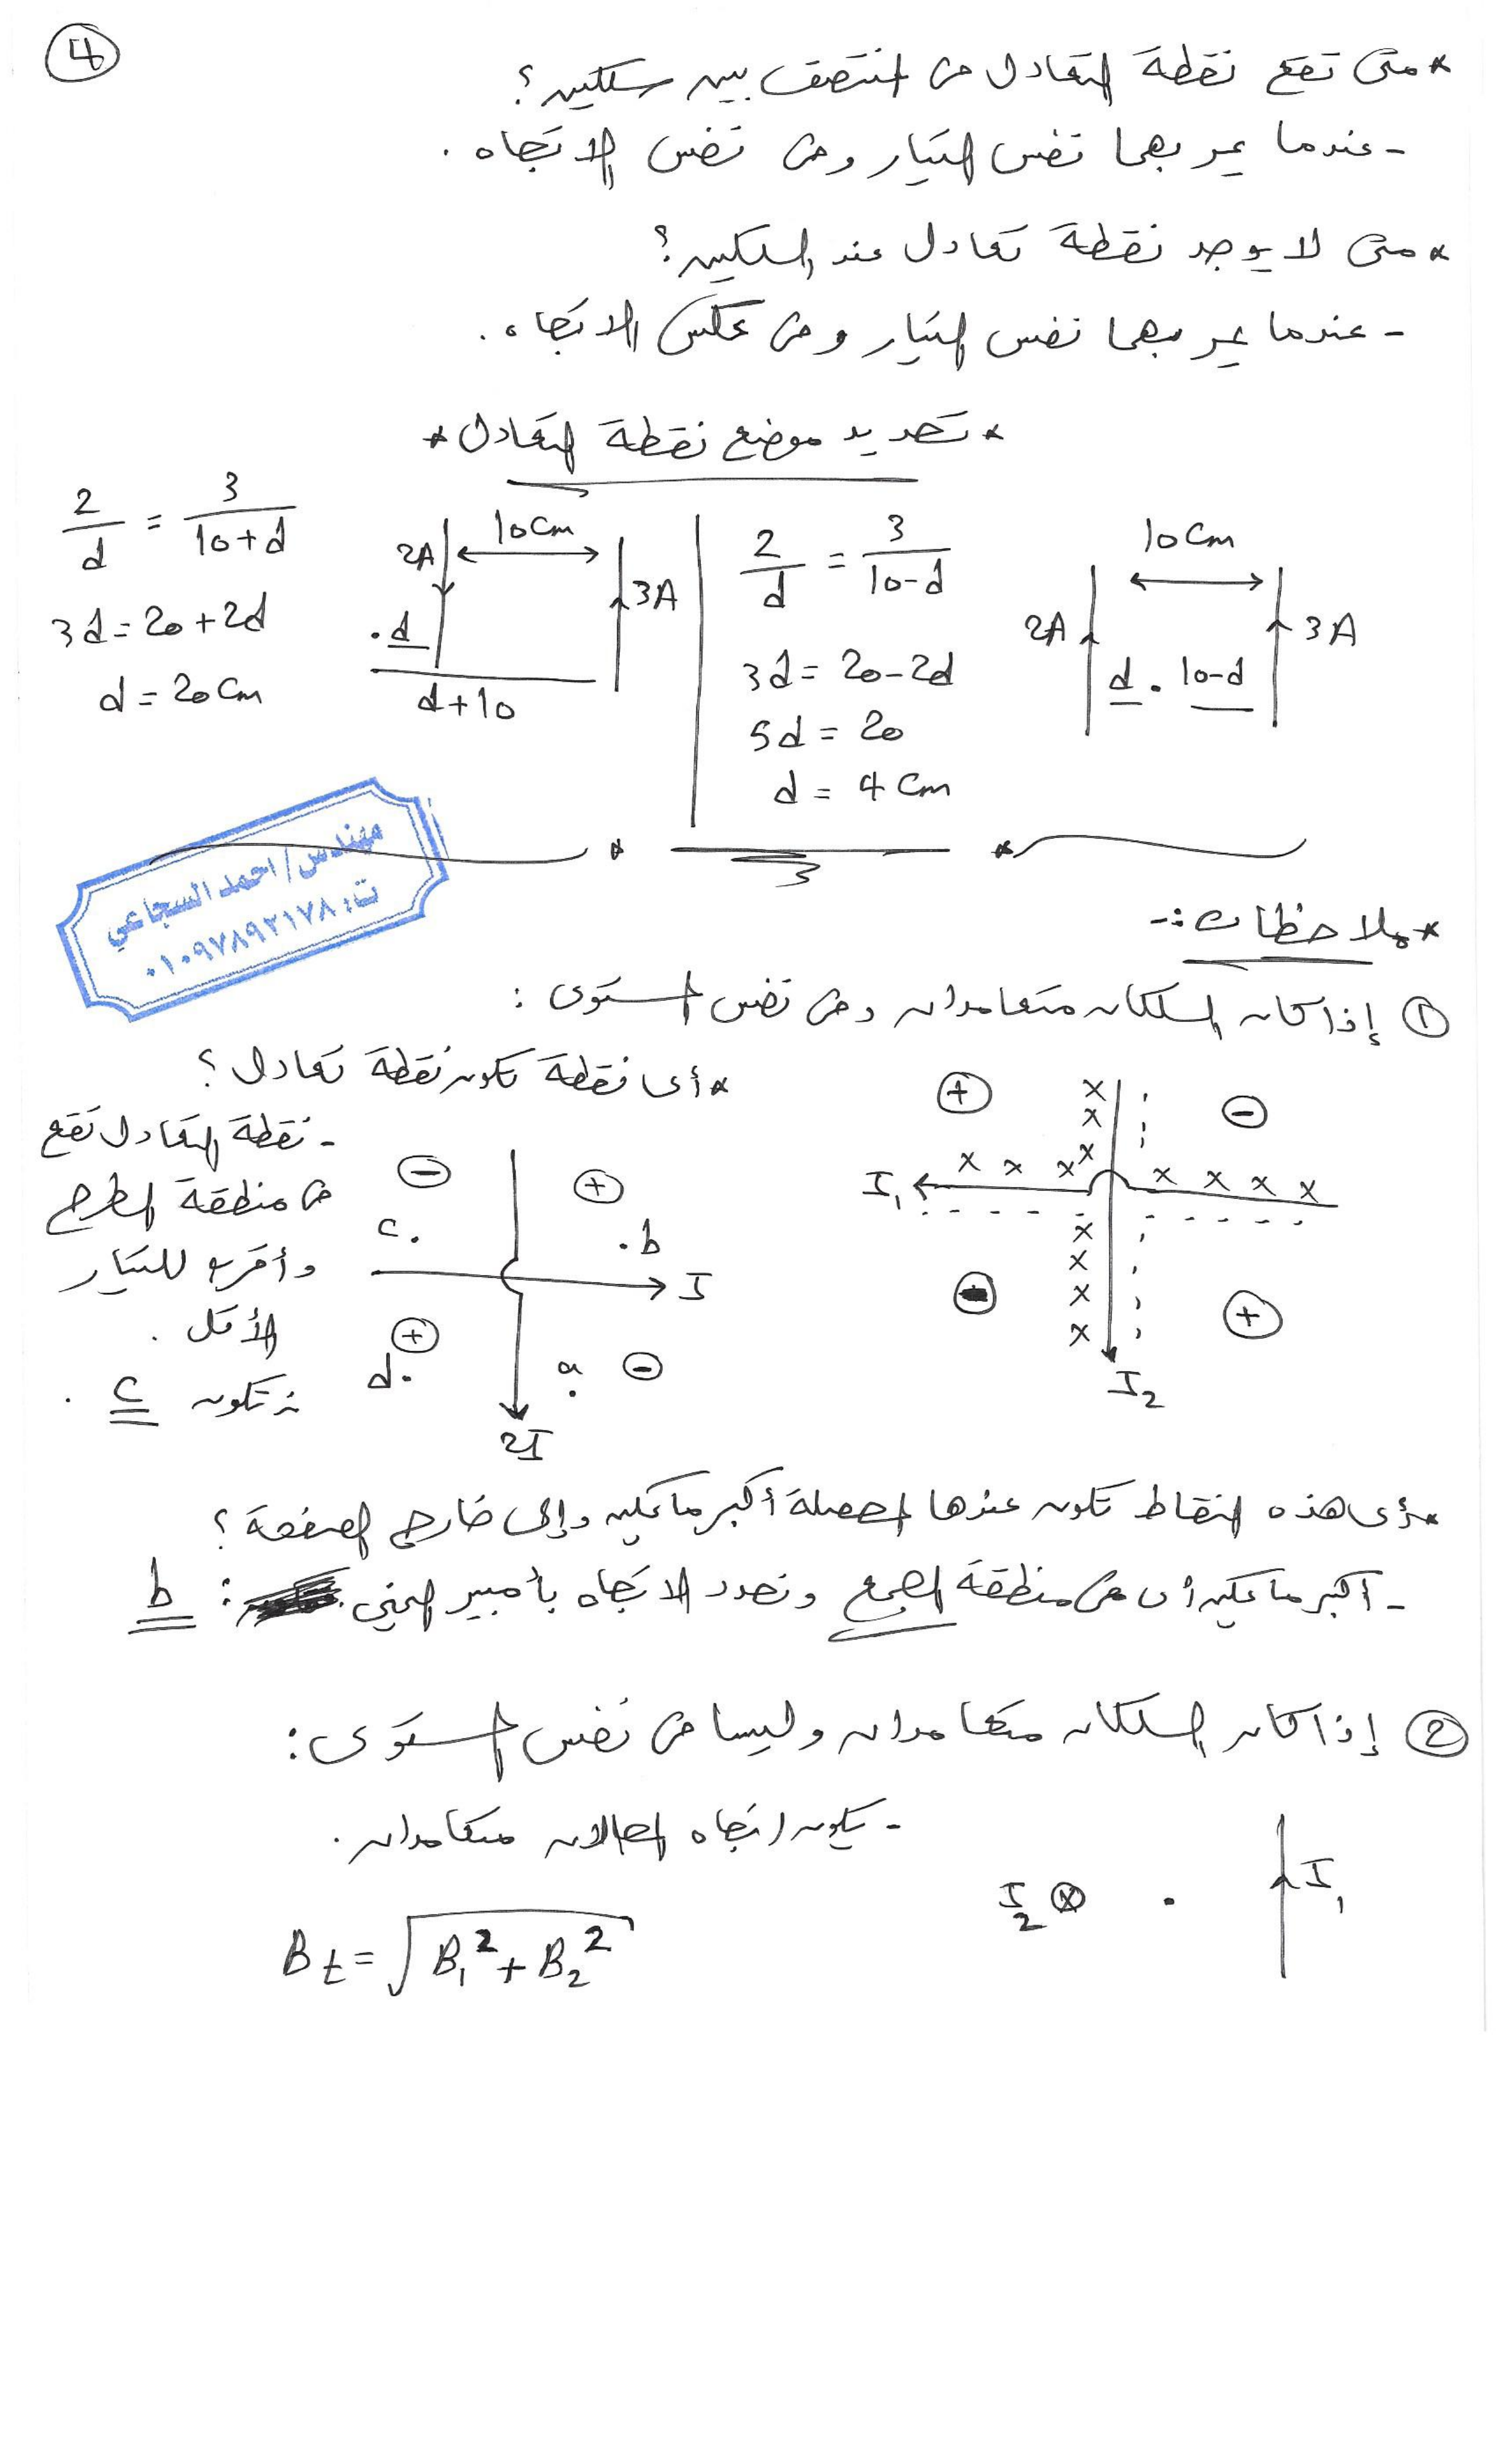 4
* متى تقع نقطة التعادل في المنتصف بين سلكين؟
- عندما يمر بهما نفس التيار وفى نفس الاتجاه .
* متى لا يوجد نقطة تعادل عند السلكين؟
- عندما يمر بهما نفس التيار وفى عكس الاتجاه .
* تحديد موضع نقطة التعادل *
10 cm
2A
3A
d . 10-d
2/d = 3/(10-d)
3d = 20-2d
5d = 20
d = 4 cm
10 cm
2A
3A
. d
d+10
2/d = 3/(10+d)
3d = 20+2d
d = 20 cm
مهندس/احمد السجاعي
ت: ٠١٠٩٧٨٩٢١٧٨
* ملاحظات :-
① إذا كان السلكان متعامدان وفى نفس المستوى :
+ x x x x - 
I₁ x x x x x x x
- x x x x +
I₂
* أى نقطة تكون نقطة تعادل ؟
- نقطة التعادل تقع
فى منطقة الطرح
وأقرب للتيار
الأقل .
∴ تكون c .
- +
c. . b
I
+ -
d. a.
2I
* أى هذه النقاط تكون عندها المحصلة أكبر ما يمكن وإلى خارج الصفحة ؟
- أكبر ما يمكن أى فى منطقة الجمع ونحدد الاتجاه بأمبير اليمنى : b
② إذا كان السلكان متعامدان وليسا فى نفس المستوى :
- يكون اتجاه المجالان متعامدان .
I₂ ⊗ . I₁
Bt = √(B₁² + B₂²)